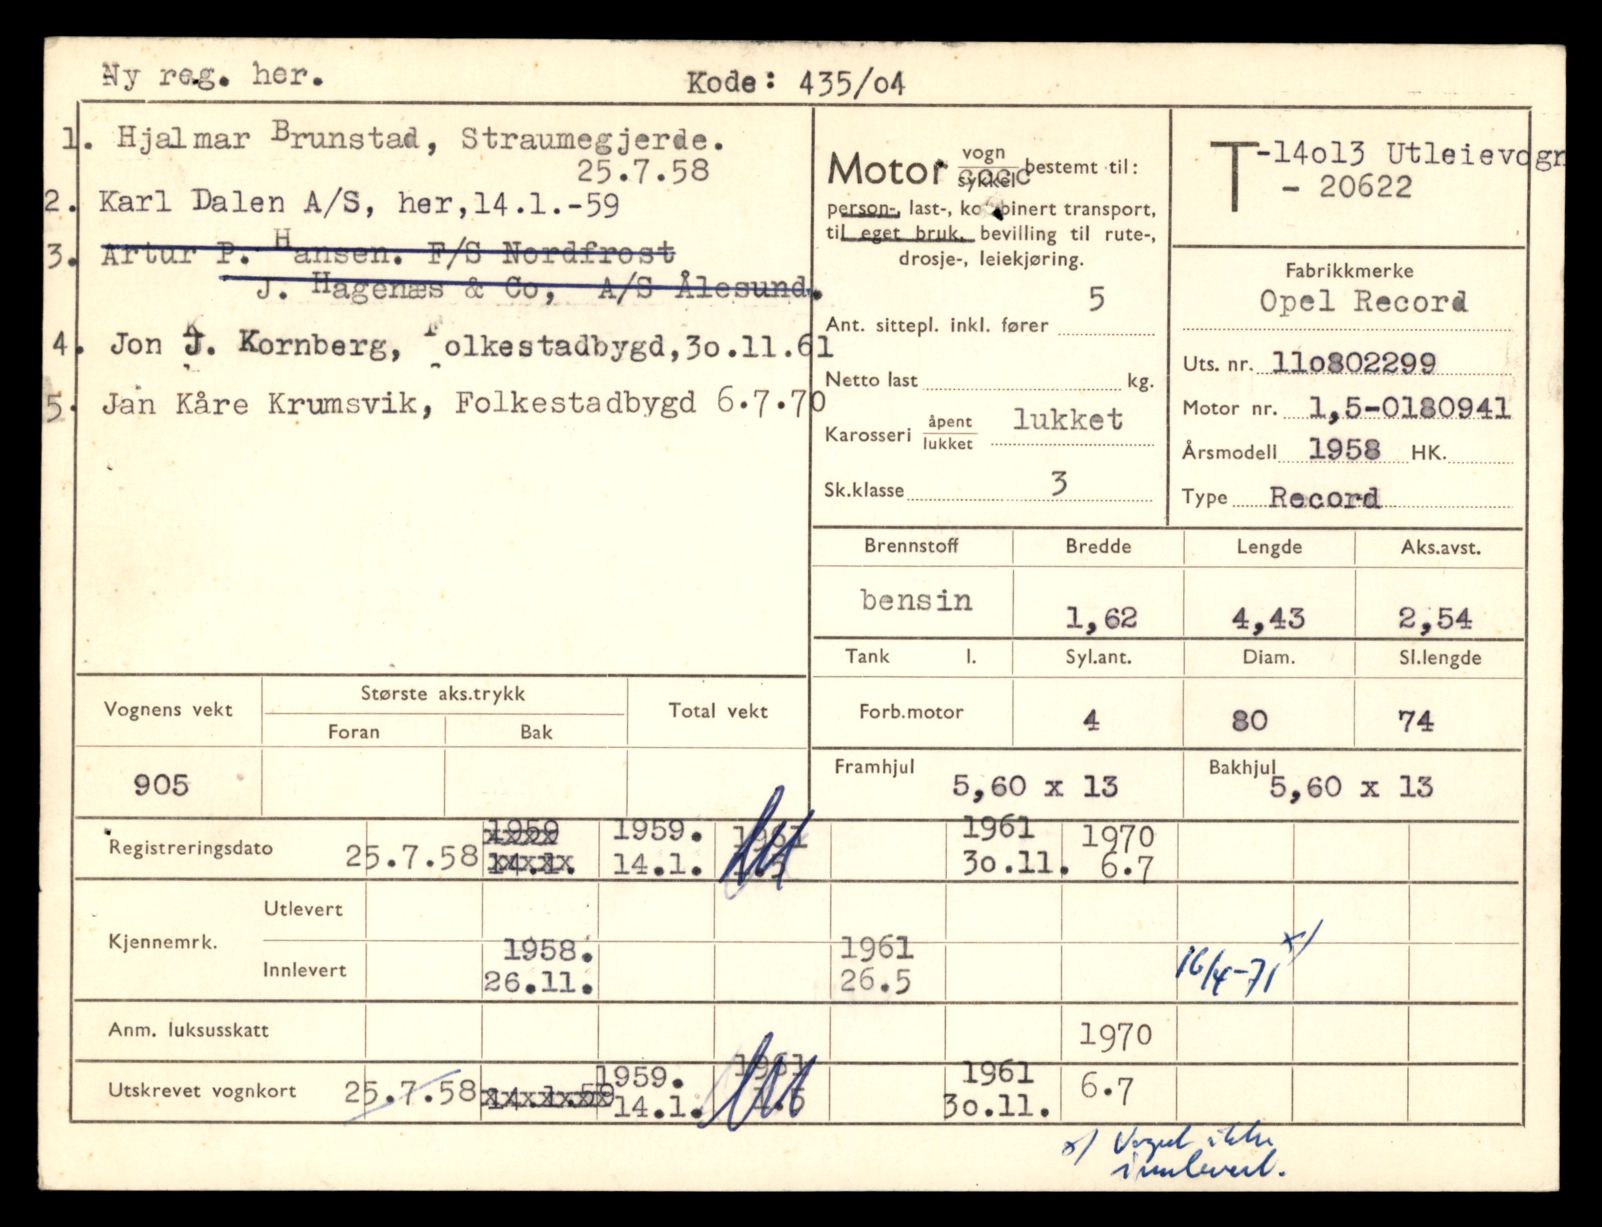 Ny reg. her.
Kode: 435/o4
1. Hjalmar Brunstad, Straumegjerde.
25.7.58
2. Karl Dalen A/S, her,14.1.-59
3. Artur P. Hansen. F/S Nordfrost
J. Hagenæs & Co, A/S Ålesund.
4. Jon J. Kornberg, Folkestadbygd,3o.11.61
5. Jan Kåre Krumsvik, Folkestadbygd 6.7.70
Motor vogn
sykkel bestemt til:
person-, last-, kombinert transport,
til eget bruk, bevilling til rute-,
drosje-, leiekjøring.
5
Ant. sittepl. inkl. fører
Netto last kg.
Karosseri åpent
lukket lukket
Sk.klasse 3
T-14o13 Utleievogn
- 20622
Fabrikkmerke
Opel Record
Uts. nr. 11o802299
Motor nr. 1,5-0180941
Årsmodell 1958 HK.
Type Record
Brennstoff Bredde Lengde Aks.avst.
bensin 1,62 4,43 2,54
Tank l. Syl.ant. Diam. Sl.lengde
Forb.motor 4 80 74
Framhjul 5,60 x 13 Bakhjul 5,60 x 13
Vognens vekt Største aks.trykk Total vekt
Foran Bak
905
1959 1959. 1961 1961 1970
Registreringsdato 25.7.58 14.1. 14.1. 3o.11. 6.7
Kjennemrk.
Utlevert
Innlevert 1958. 1961
26.11. 26.5 16/4-71 x)
Anm. luksusskatt 1970
1959. 1961 1961
Utskrevet vognkort 25.7.58 14.1.59 14.1. 3o.11. 6.7
x) Vognk ikke
innlevert.